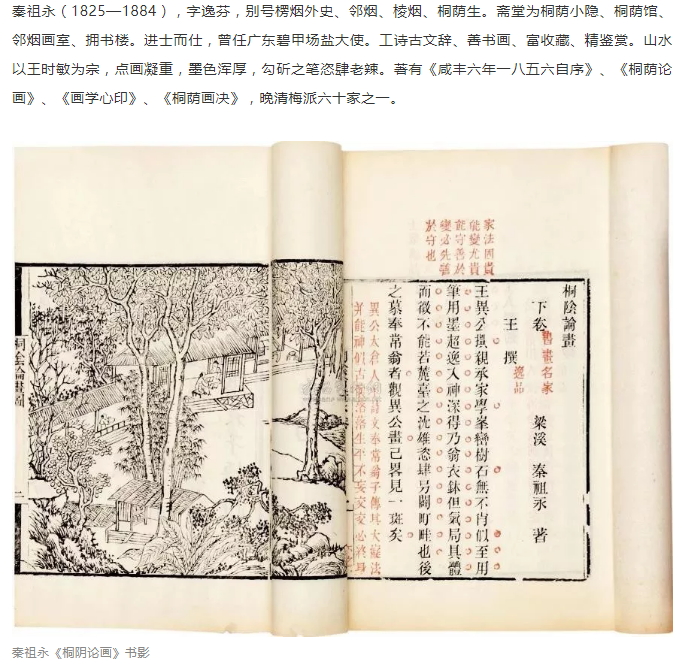 秦祖永（1825—1884），字逸芬，别号楞烟外史、邻烟、棱烟、桐荫生。斋堂为桐荫小隐、桐荫馆、
邻烟画室、拥书楼。进士而仕，曾任广东碧甲场盐大使。工诗古文辞、善书画、富收藏、精鉴赏。山水
以王时敏为宗，点画凝重，墨色浑厚，勾斫之笔恣肆老辣。著有《咸丰六年一八五六自序》、《桐荫论
画》、《画学心印》、《桐荫画决》，晚清梅派六十家之一。
家法固貴
能變尤貴
能守善於
變必先善
於守也
桐陰論畫
下卷 書畫名家 梁溪 秦祖永 著
王撰 逸品
王異公撰親承家學峯巒樹石無不肖似至用
筆用墨超逸入神深得乃翁衣鉢但氣局具體
而微不能若麓臺之沈雄恣肆另闢町畦也後
之慕奉常翁者觀異公畫已畧見一斑矣
異公太倉人
桐陰論畫圖
二
秦祖永《桐阴论画》书影